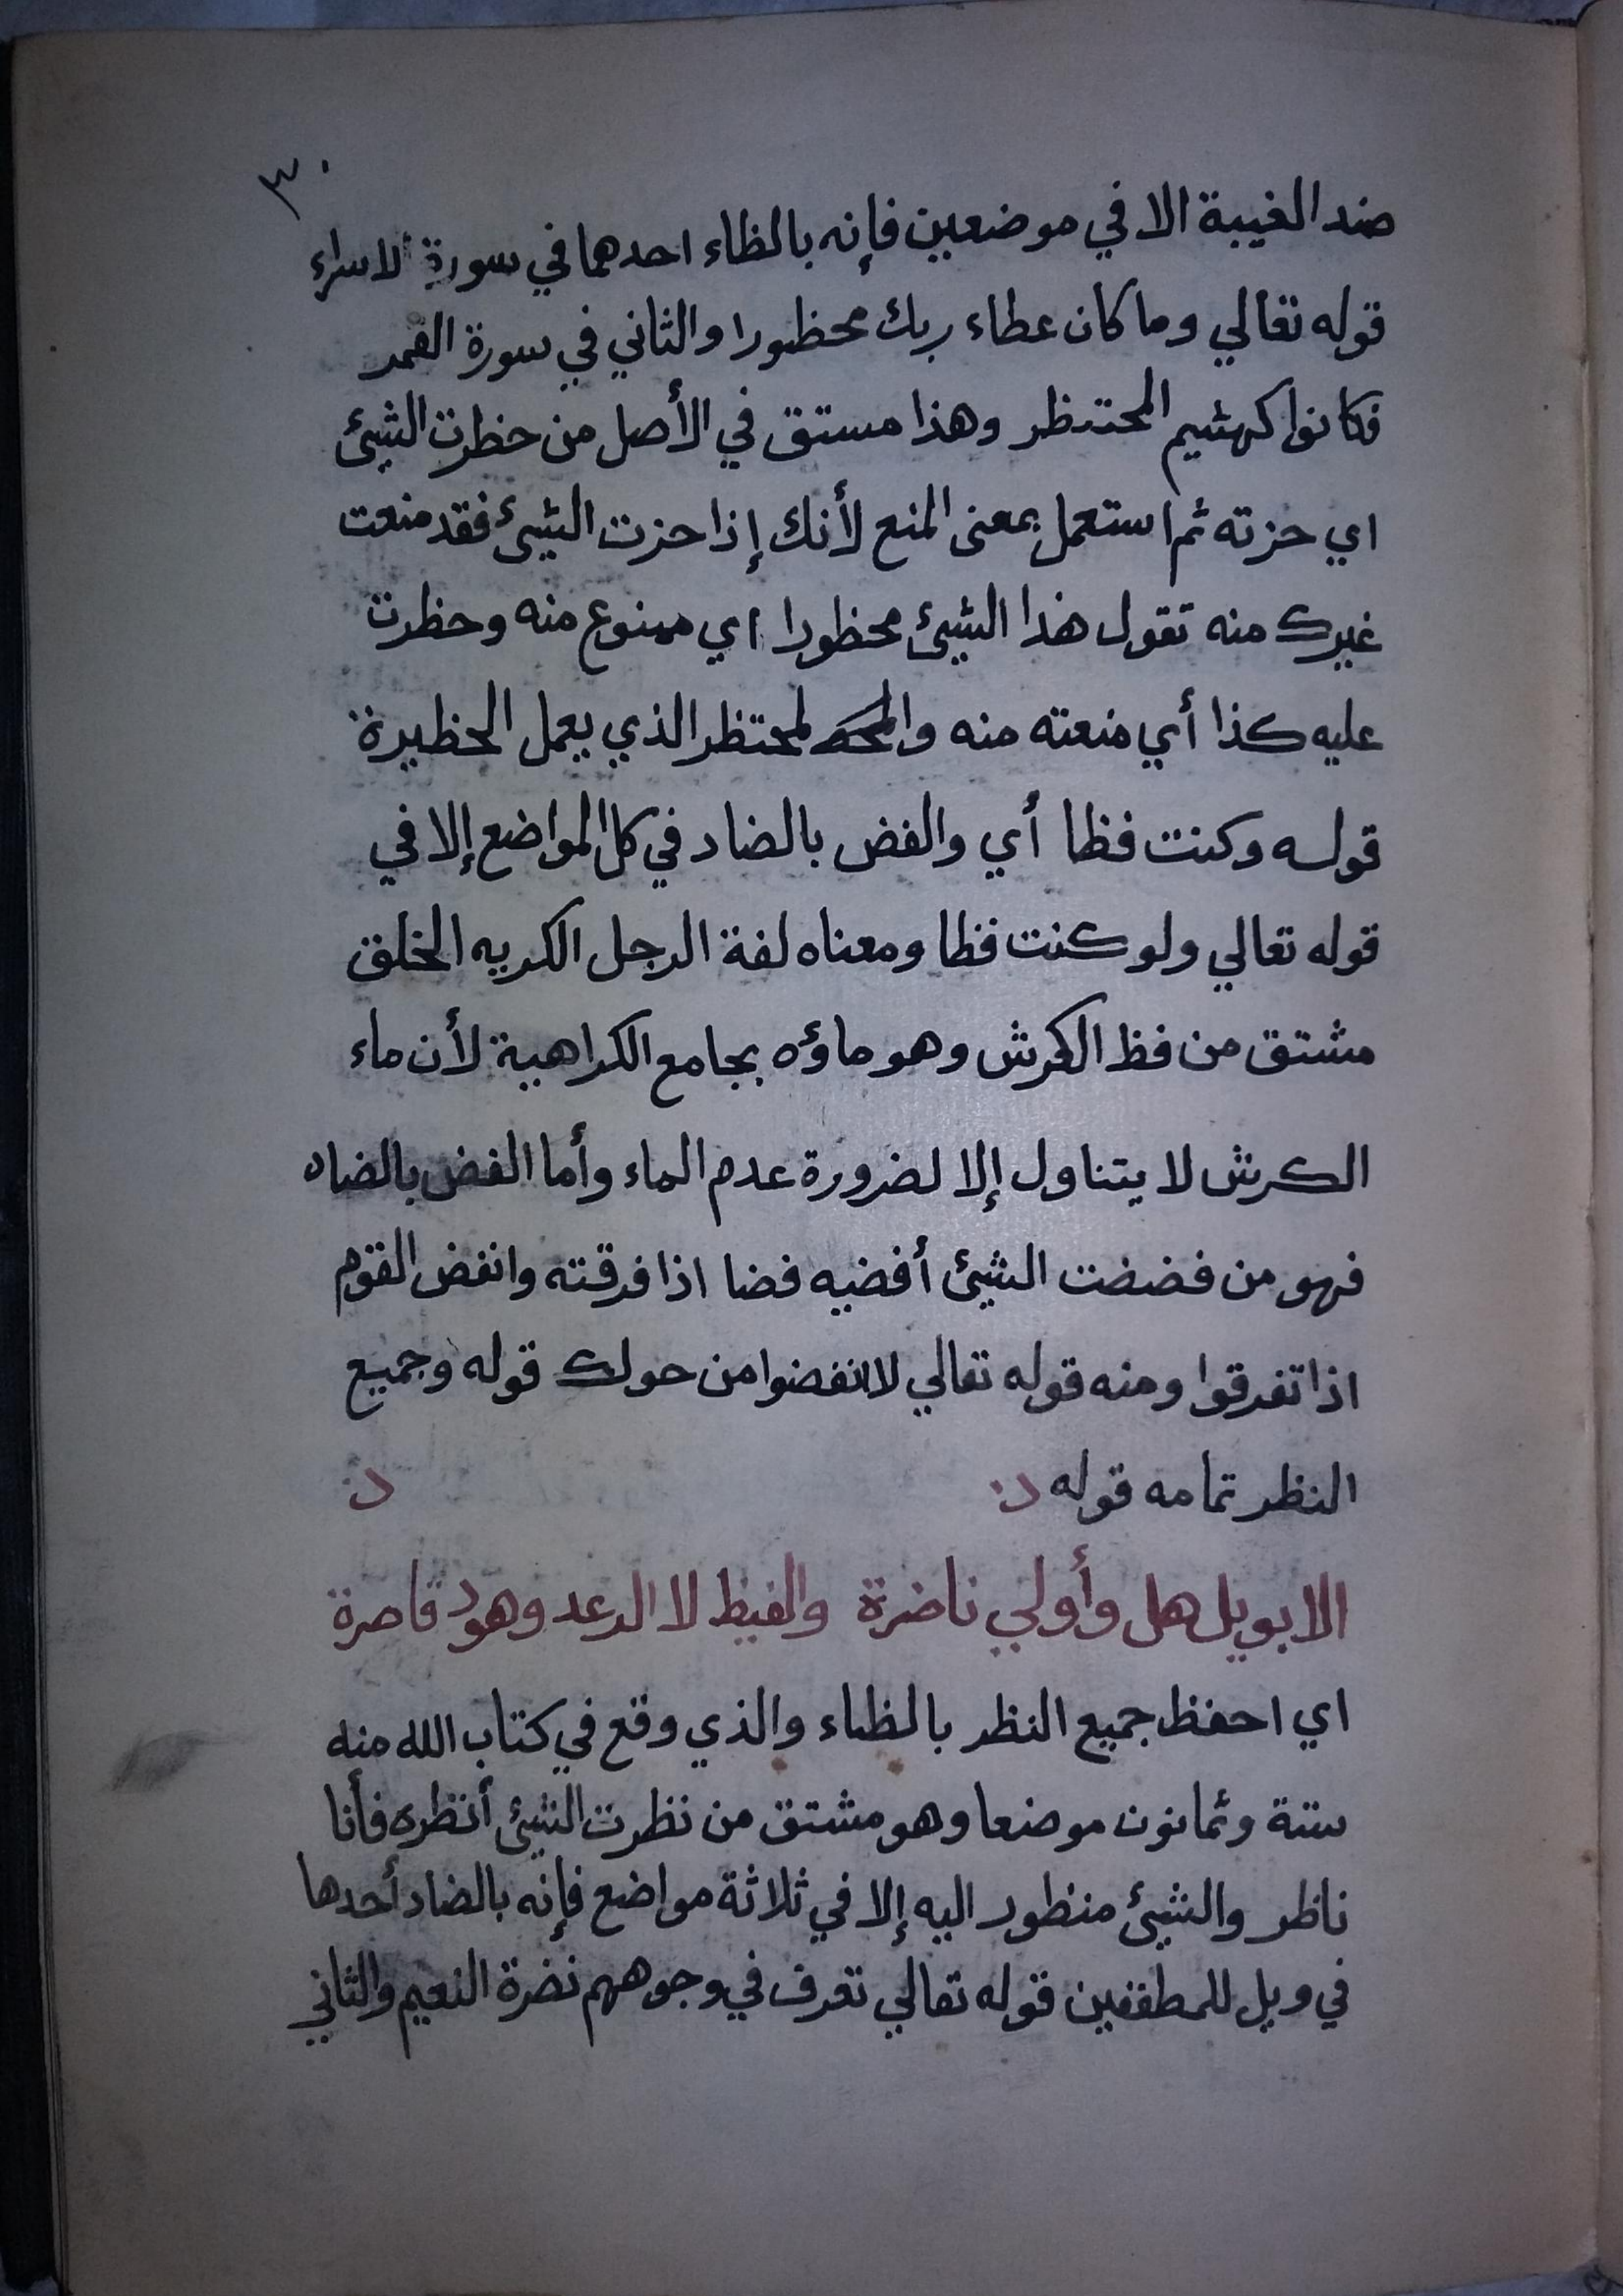 ٣٠
ضد الغيبة الا في موضعين فإنه بالظاء احدهما في سورة الاسراء
قوله تعالي وما كان عطاء ربك محظورا والثاني في سورة القمر
فكانوا كهشيم المحتظر وهذا مستق في الأصل من حظرت الشيئ
اي حزته ثم استعمل بمعنى المنع لأنك إذا حزت الشيئ فقد منعت
غيرك منه تقول هذا الشيئ محظورا اي ممنوع منه وحظرت
عليه كذا أي منعته منه والمحتظر الذي يعمل الحظيرة
قوله وكنت فظا أي والفض بالضاد في كل المواضع إلا في
قوله تعالي ولو كنت فظا ومعناه لغة الرجل الكريه الخلق
مشتق من فظ الكرش وهو ماؤه بجامع الكراهية لأن ماء
الكرش لا يتناول إلا لضرورة عدم الماء وأما الفض بالضاد
فهو من فضضت الشيئ أفضيه فضا اذا فرقته وانفض القوم
اذا تفرقوا ومنه قوله تعالي لانفضوا من حولك قوله وجميع
النظر تمامه قوله
الا بويل هل وأولي ناضرة والغيظ لا الرعد وهود قاصرة
اي احفظ جميع النظر بالظاء والذي وقع في كتاب الله منه
ستة وثمانون موضعا وهو مشتق من نظرت الشيئ أنظره فأنا
ناظر والشيئ منظور اليه إلا في ثلاثة مواضع فإنه بالضاد أحدها
في ويل للمطففين قوله تعالي تعرف في وجوههم نضرة النعيم والثاني